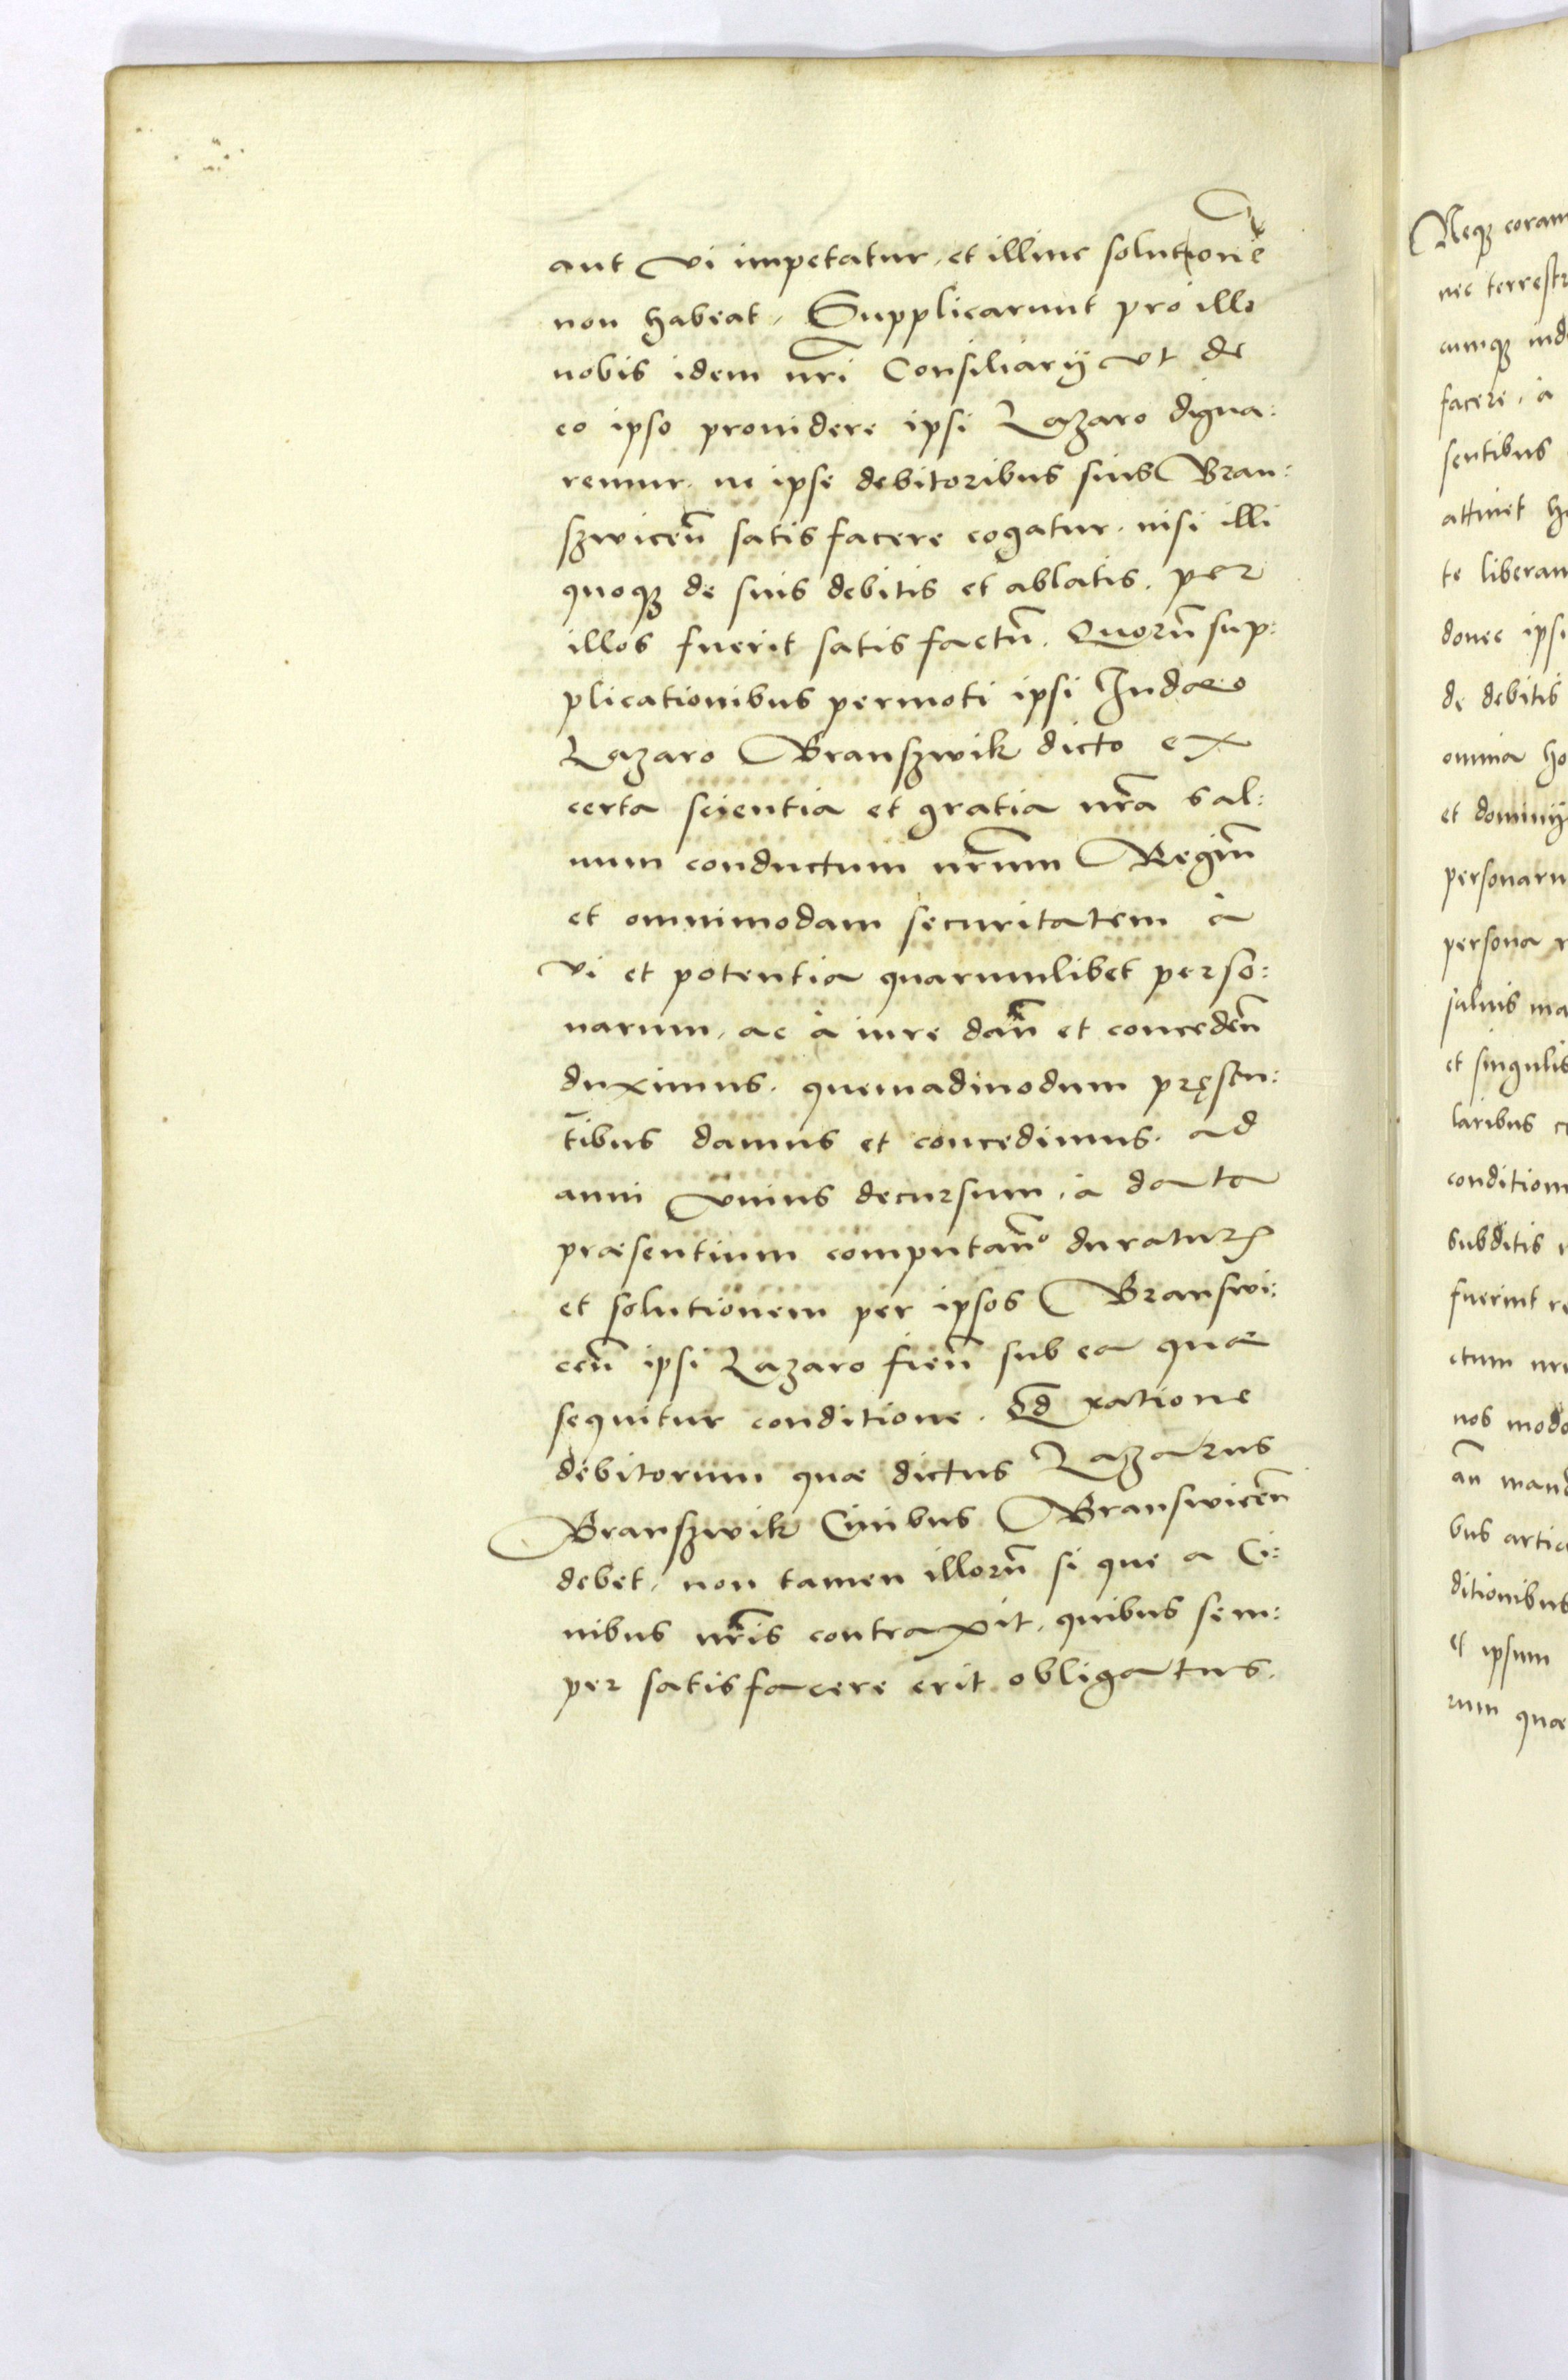 aut vi impetatur, et illinc solutionē
non habeat, Supplicarunt pro illo
nobis idem nr̄i Consiliarij vt de
eo ipso prouidere ipsi Lazaro digna:
remur, ne ipse debitoribus suis Bran:
szwiceñ satis facere cogatur, nisi illi
quoqꝫ de suis debitis et ablatis, per
illos fuerit satis factū. Quorū sup:
plicationibus permoti ipsi Iudæo
Lazaro Branszwik dicto ex
certa scientia et gratia nr̄a sal:
uum conductum nr̄um Regiū
et omnimodam securitatem à
vi et potentia quarumlibet perso:
narum, ac à iure dañ et concedeñ
duximus, quemadmodum pręsen:
tibus damus et concedimus, ad
anni vnius decursum, à data
præsentium computañº duratur
et solutionem per ipsos Branswi:
ceñ ipsi Lazaro fieñ sub ea quæ
sequitur conditione. Qđ ratione
debitorum quæ dictus Lazarus
Branszwik Ciuibus Branswiceñ
debet, non tamen illorū si que a Ci:
uibus nr̄is contraxit, quibus sem:
per satisfacere erit obligatus.
Neqꝫ coram
nec terrestr
cumqꝫ iud
facere, à
sentibus
attinet h
te liberam
donec ipsi
de debitis
omnia ho
et dominij
personaru
persona r
saluis ma
et singulis
laribus c
condition
subditis
fuerint re
ctum nr
nos modo
añ mand
bus artic
ditionibus
et ipsum
rum quæ